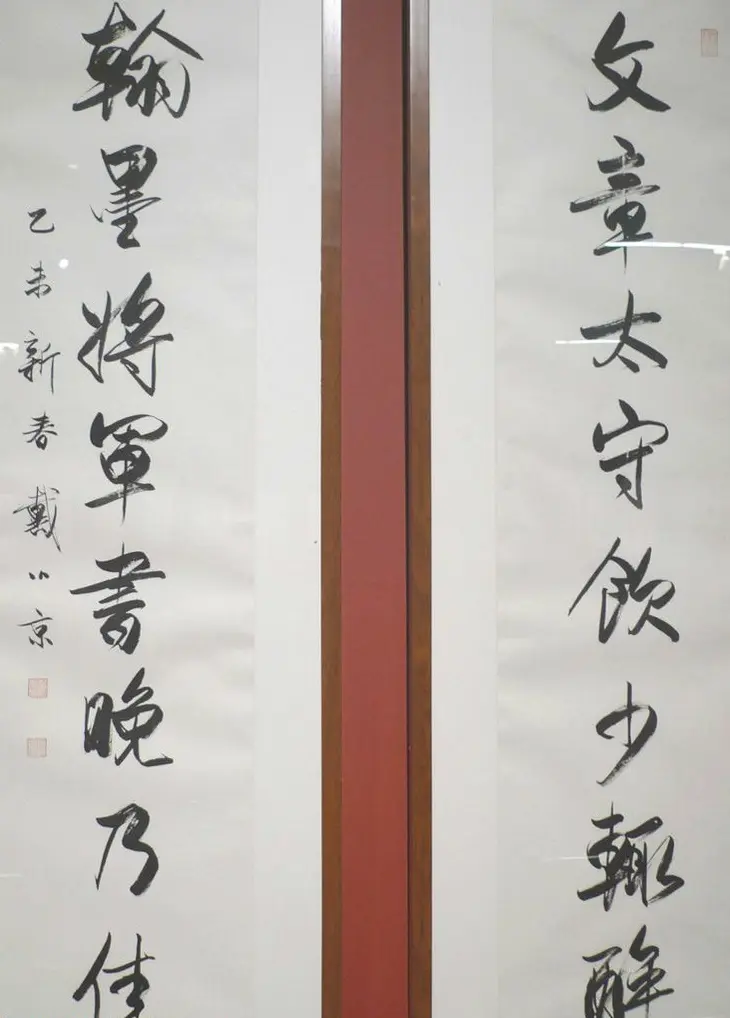 文章太守飲少輒醉
翰墨將軍書晚乃佳
乙未新春戴公京